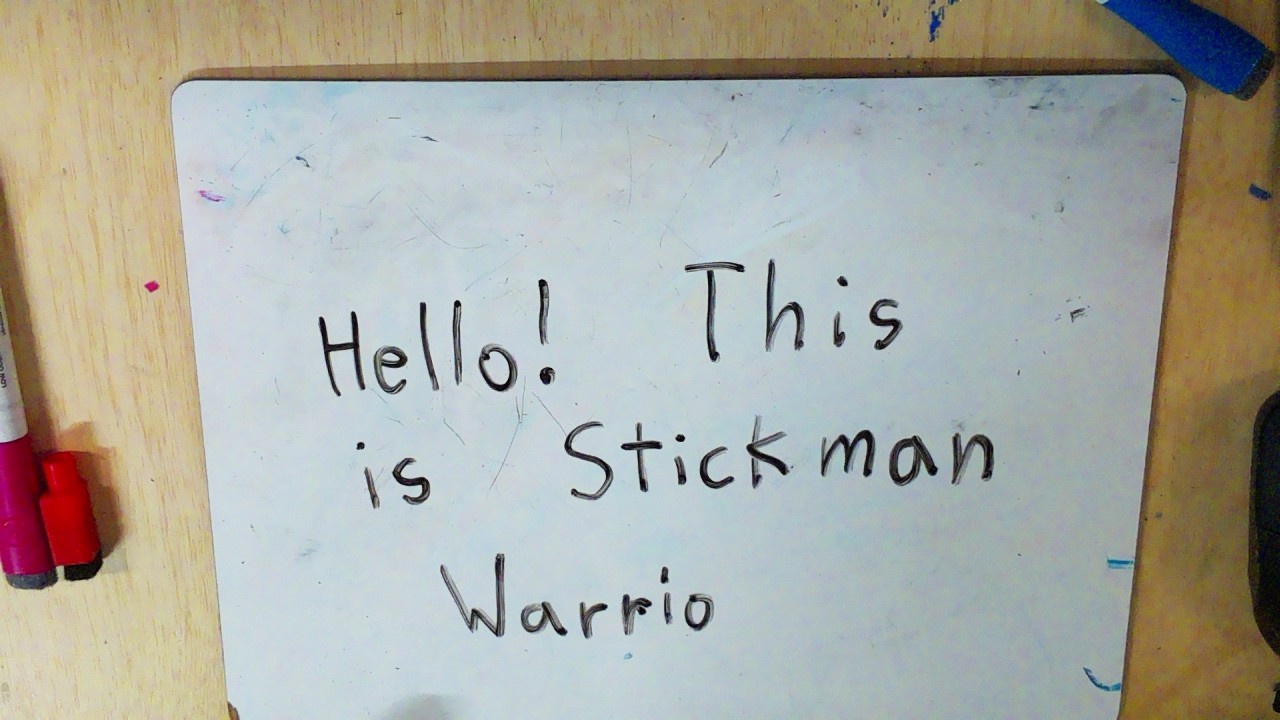 Hello! This
is Stickman
Warrio